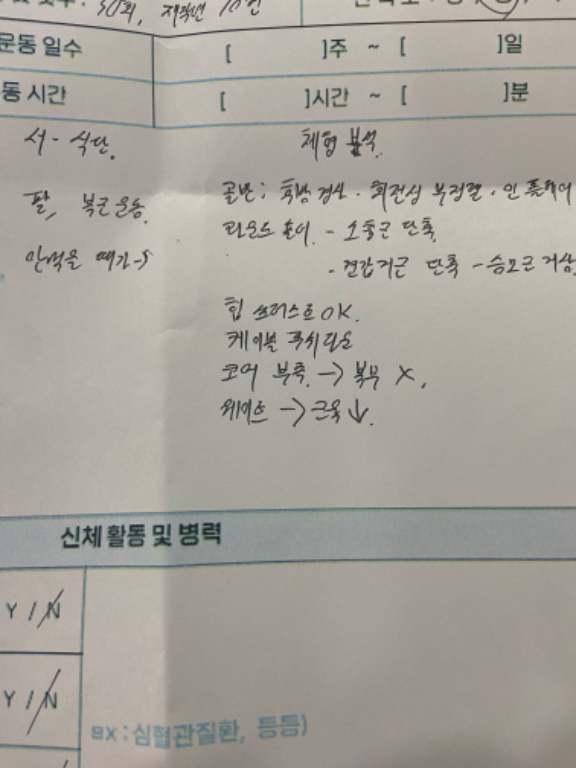 30회, 재작년 10번
운동 일수 [ ]주 ~ [ ]일
동 시간 [ ]시간 ~ [ ]분
식단. 체형 분석.
팔, 복근운동. 골반; 후방경사. 회전성 부정렬. 인플레어
라운드 숄더 - 소흉근 단축
안먹을 때가
- 견갑거근 단축 - 승모근 거상
힙 쓰러스트 OK.
케이블 푸쉬다운
코어 부족. → 복부 X.
웨이트 → 근육↓.
신체 활동 및 병력
Y / N
Y / N
BX : 심혈관질환, 등등)